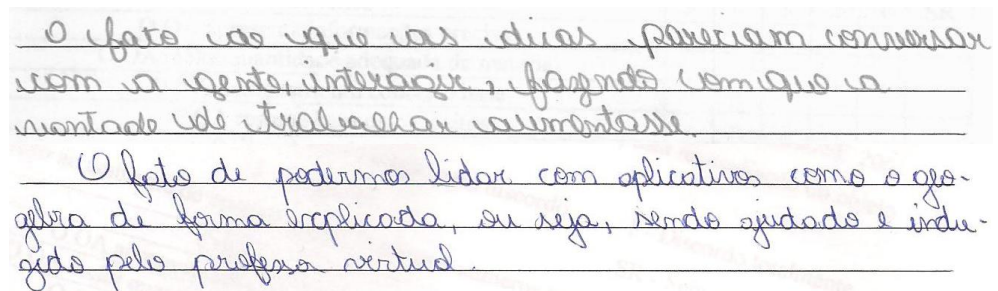 O fato de que as dicas pareciam conversar
com a gente, interagir, fazendo com que a
vontade de trabalhar aumentasse.
O fato de podermos lidar com aplicativos como o geo-
gebra de forma explicada, ou seja, sendo ajudado e indu-
zido pelo professor virtual.